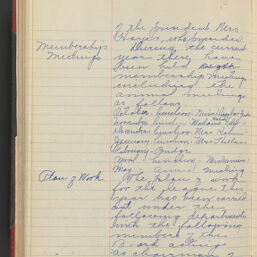 of the President Mrs
who presided
Memberships
Meetings
During the current
year there have
been held
membership meetings
including the
annual meeting
as follows
October luncheon
November luncheon
December luncheon Mrs
January luncheon Mrs
February Bridge
April luncheon
May annual meeting
Plan of Work
The plan of work
for the League this
year has been carried
out under the
following departments
with the following
members of the
Board acting
as chairmen of